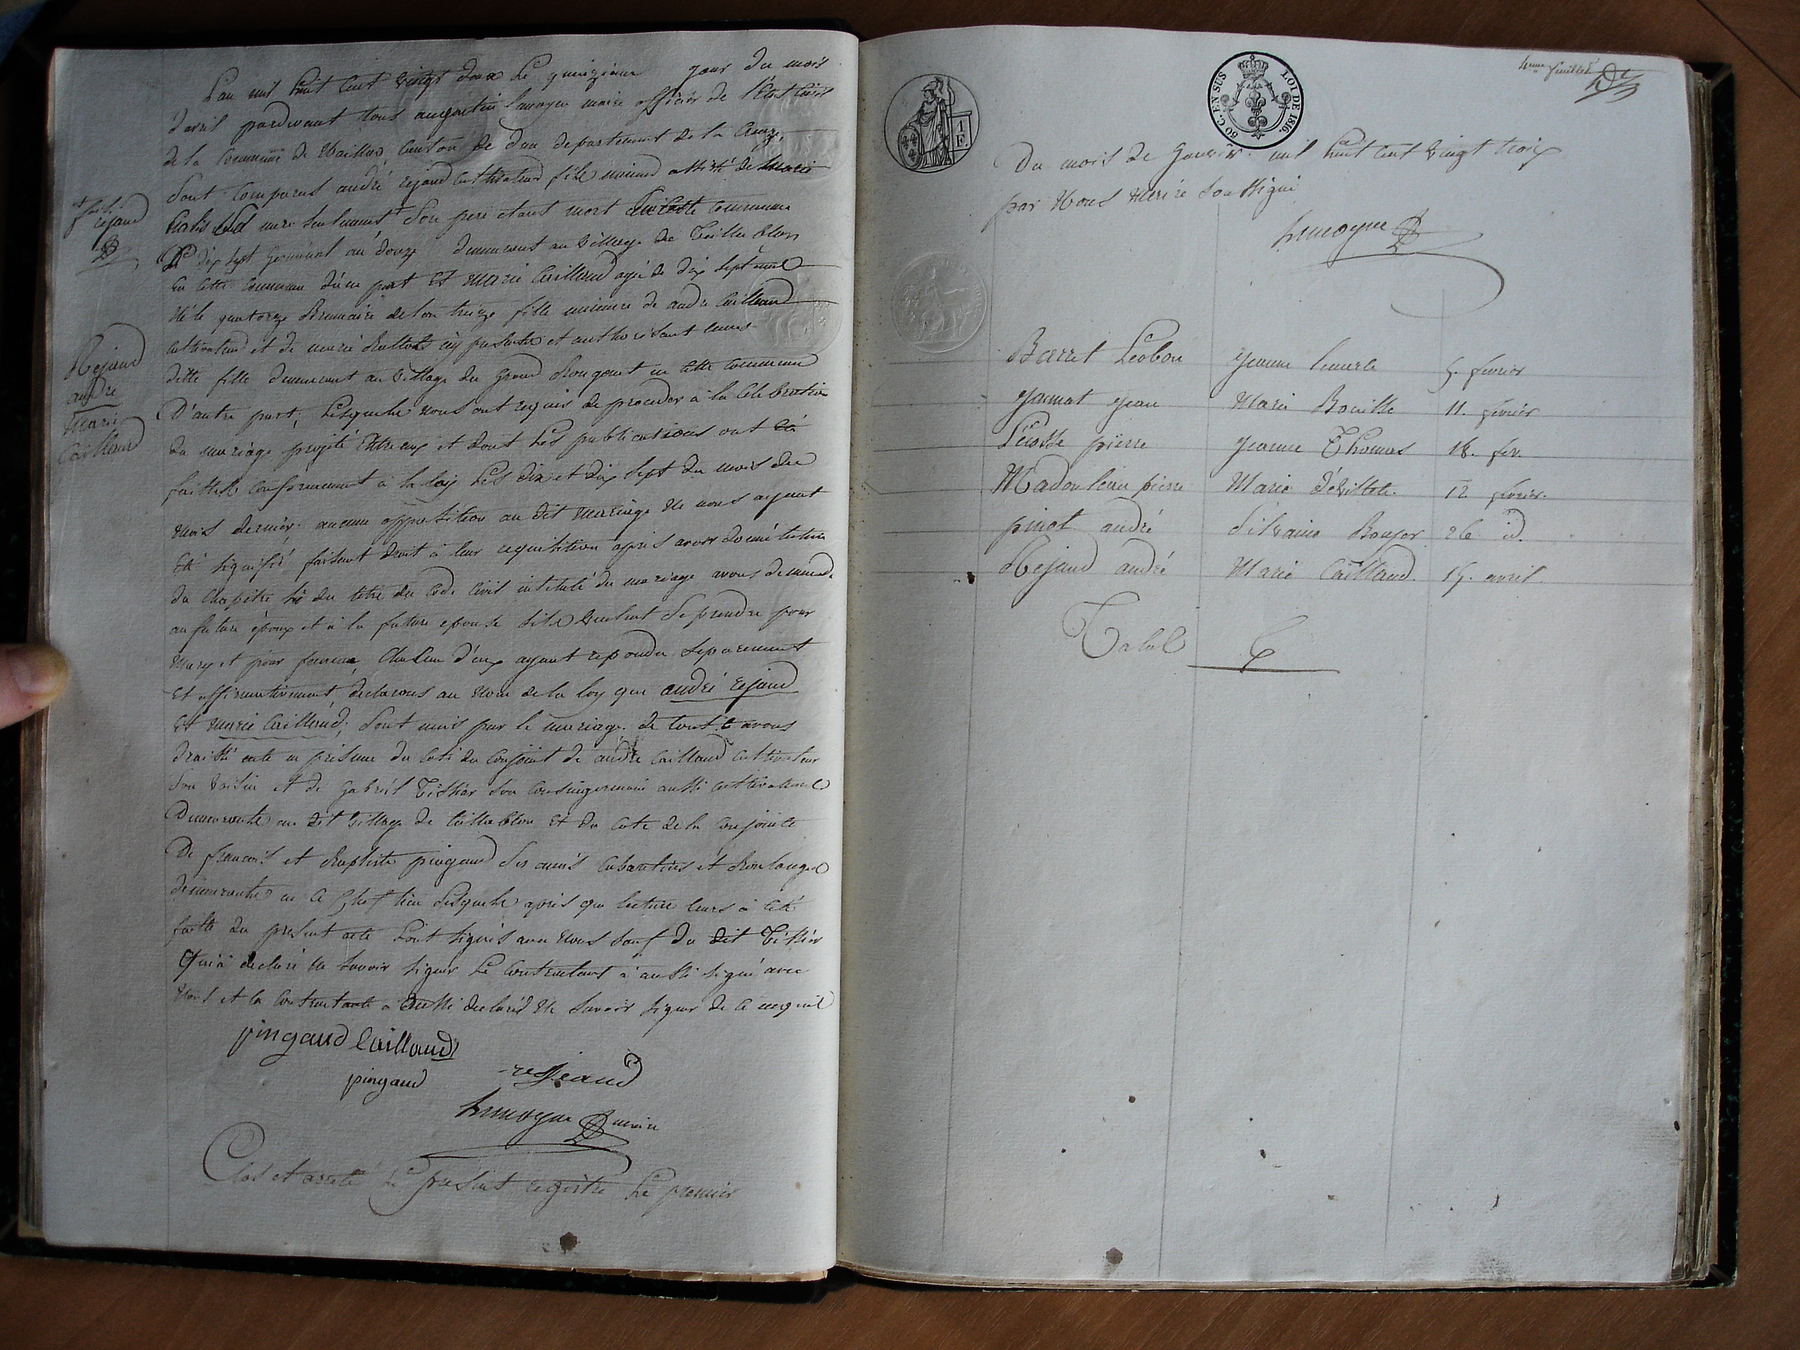 L'an mil huit cent vingt deux le quinzieme jour du mois
d'avril pardevant nous augustin lemoyne maire officier de l'Etat Civil
de la Commune de Canton de Dun departement de la Creuse
Sont Comparus andré rejaud cultivateur fils mineur assisté de marie
sa mere seulement son pere etant mort en cette commune
le dix sept Germinal an douze demeurant au village de
En cette commune d'une part Et Marie Caillaud agée de dix sept ans
Née le quatorze Brumaire de l'an treize fille mineure de andré Caillaud
cultivateur et de marie icy presents et authorisant leur
ditte fille demeurant au village du Grand en cette commune
D'autre part, Lesquels Nous ont requis de proceder à la Celebration
du mariage projeté Entreux et dont Les publications ont été
faittes conformement à la loy Les dix et dix sept du mois de
mois dernier; aucune opposition au dit mariage Ne nous ayant
Eté signifié faisant droit à leur requisition après avoir donné lecture
du Chapitre six du titre du Code Civil intitulé du mariage avons demandé
au futur époux et à la future epouse s'ils veulent se prendre pour
mary et pour femme, Chacun d'eux ayant repondu separement
Et affirmativement declarons au Nom de la loy que andré rejaud
Et marie Caillaud, sont unis par le mariage de tout ce avons
dressé acte en presence du coté du conjoint de andré Caillaud cultivateur
son voisin et de Gabriel Tixier son cousin germain aussi cultivateur
Demeurants au dit village de et du coté de la conjointe
De françois et Baptiste pingaud ses amis et
demeurants en ce Chef lieu Lesquels après que lecture leurs à été
faitte du present acte L'ont signés avec Nous sauf du dit Tixier
Qui à declaré Ne savoir signer Le Contractant à aussi signé avec
Nous et la contractante à aussi declaré Ne savoir signer de ce enquis
pingaud Caillaud
pingaud
rejeaud
Lemoyne maire
Clos et areté Le present registre Le premier
rejaud
Rejaud
andré
Marie
Caillaud
1 F
50 C. EN SUS
LOI DE 1816.
4eme feuillet
Du mois de Janvier mil huit cent vingt trois
par Nous Maire Soussigné
Lemoyne
Barret Léobon Jeanne 5. fevrier
Jamot Jean Marie 11. fevrier
pierre Jeanne Thomas 18. fev.
Madouleau pierre Marie 12 fevrier.
pinot andré Silvaine Boujor 26 id.
Rejaud andré Marie Caillaud. 15. avril.
Total 6